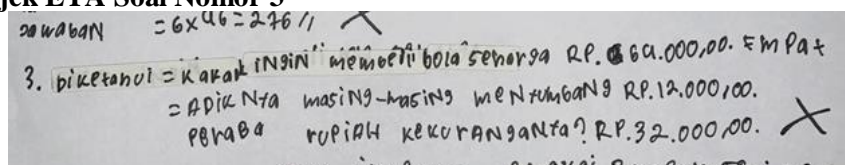 jek ETA Soal Nomor 3
Jawaban = 6x46=276 //
3. Diketahui = Kakak iNgiN membeli bola seharga RP. 64.000,00. EmPat
= ADIK Nya masiNg-masiNg meNyumbaNg RP.12.000,00.
Peraba rUPiAH KeKurANgaNya? RP.32.000,00.